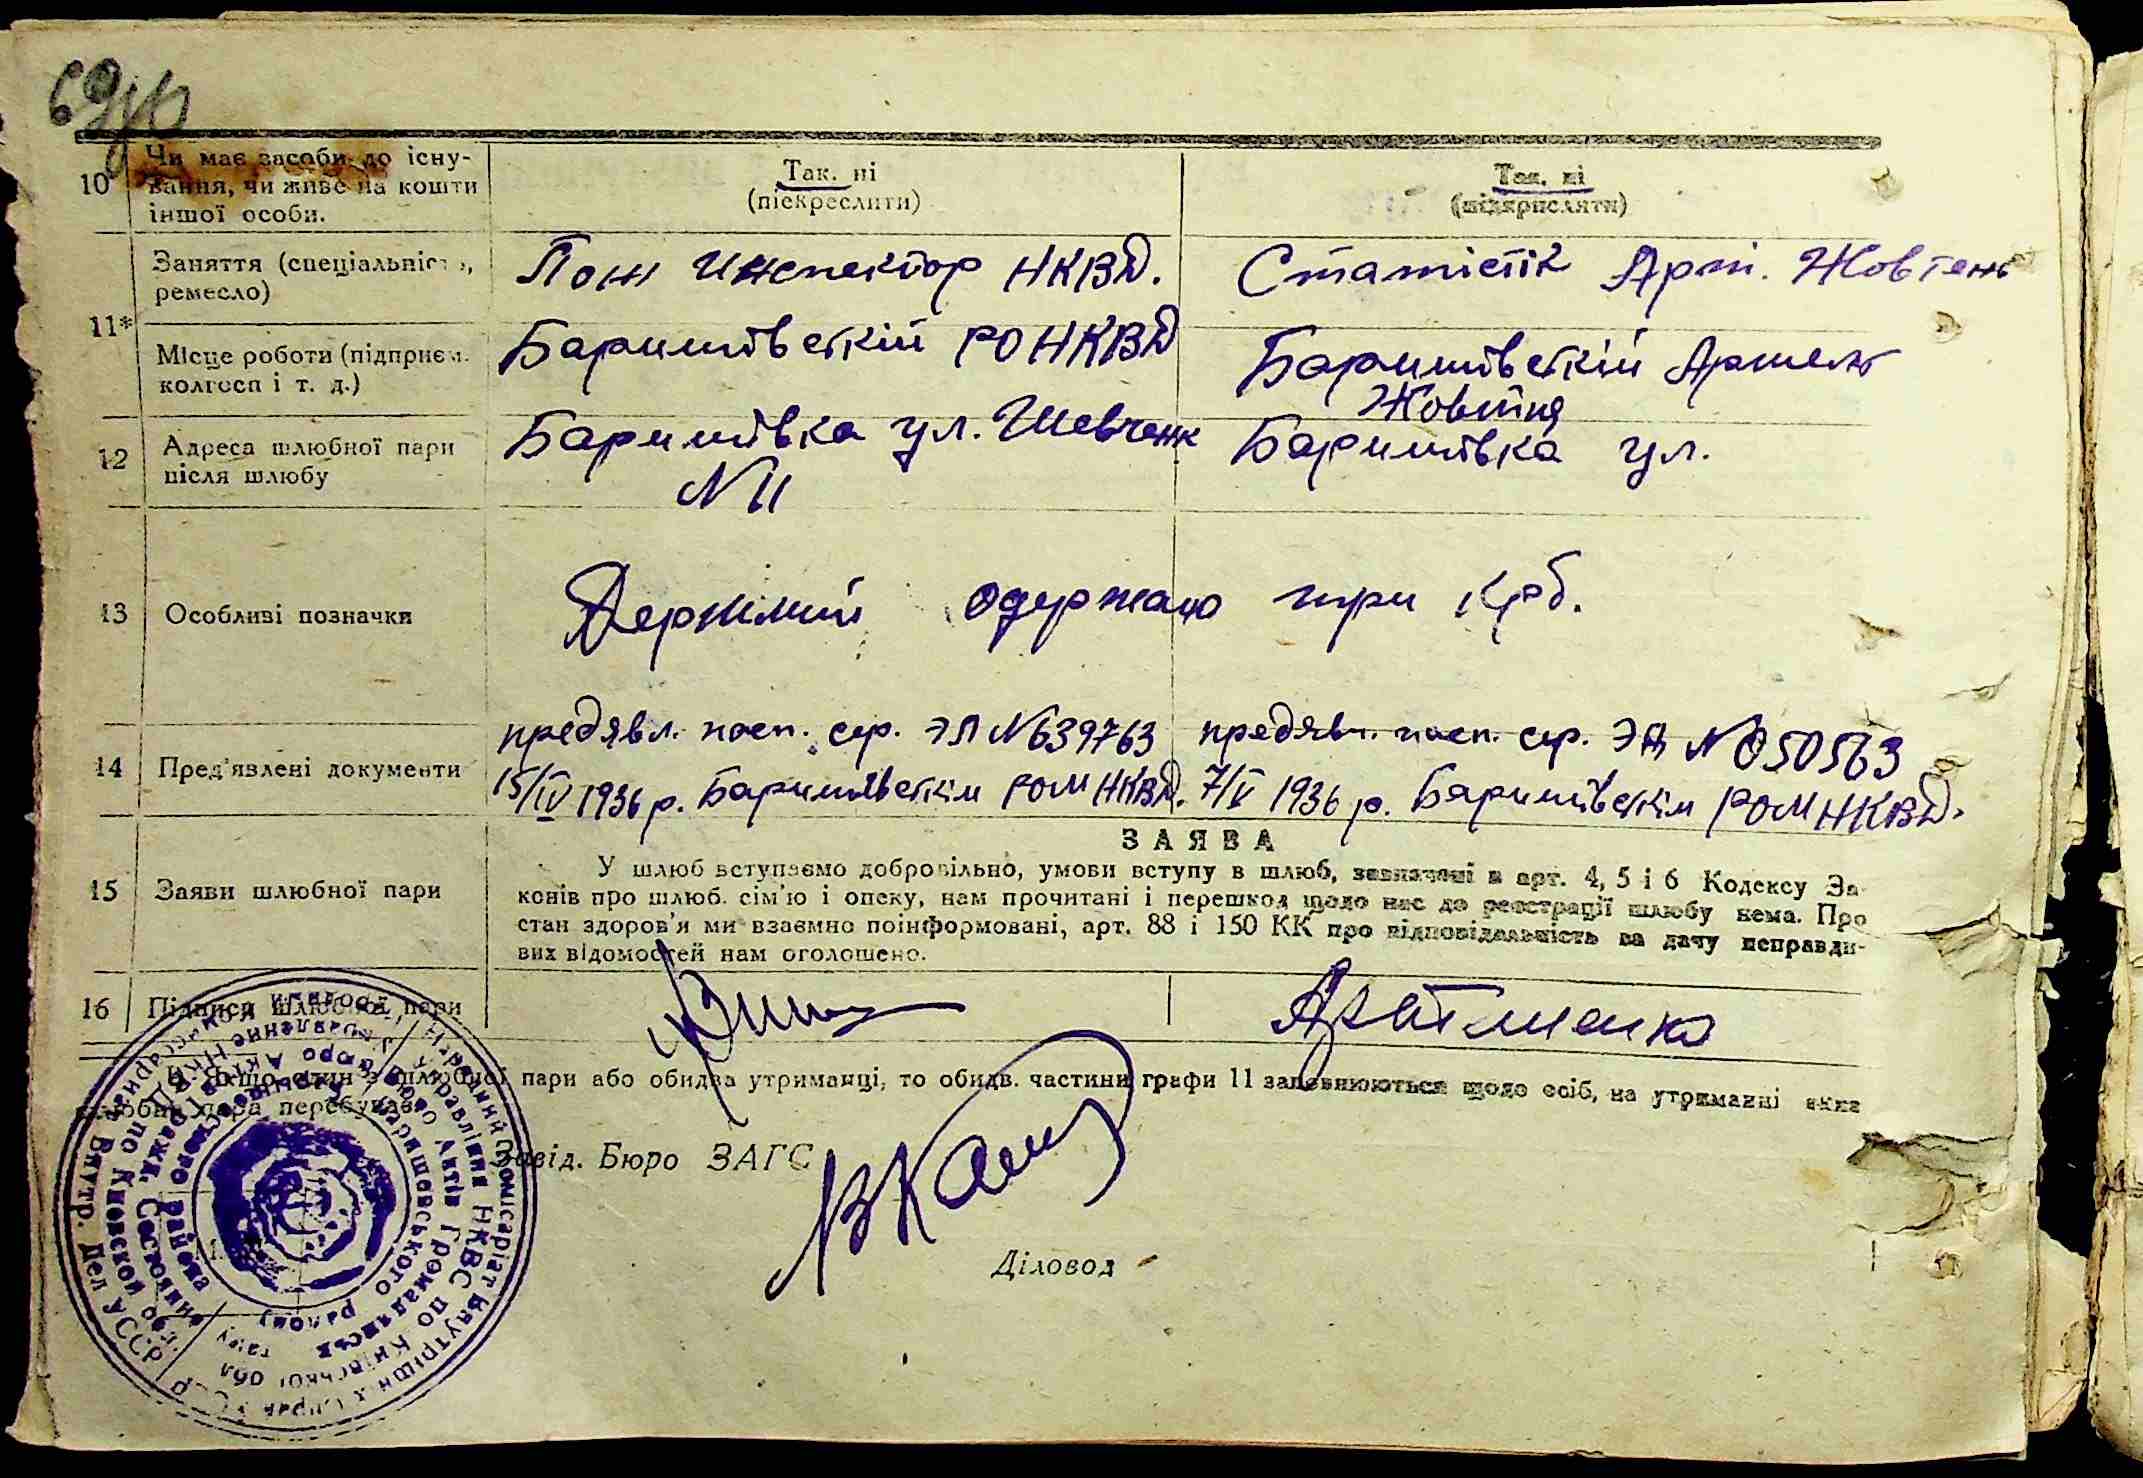 69
10 Чи має засоби до існу-
вання, чи живе на кошти
іншої особи.
Так. ні
(піекреслити)
Так. ні
(підкрисляти)
11*
Заняття (спеціальність,
ремесло)
Пож Инспектор НКВД.
Статистік Арт. Жовтень
Місце роботи (підприєм.
колгосп і т. д.)
Баришівсткій РОНКВД
Баришівсткій Артель
Жовтня
12 Адреса шлюбної пари
після шлюбу
Баришівка ул. Шевченк
N 11
Баришівка ул.
13 Особливі позначки
одержано три крб.
14 Пред'явлені документи
предявл. посп. сер. ЭЛ N 639763
15/IV 1936 р. Баришівсткім РОМ НКВД.
предявл. посп. сер. ЭД N 050563
7/V 1936 р. Баришівсткім РОМ НКВД.
15 Заяви шлюбної пари
ЗАЯВА
У шлюб вступаємо добровільно, умови вступу в шлюб, зазначені в арт. 4, 5 і 6 Кодексу За-
конів про шлюб. сім'ю і опеку, нам прочитані і перешкод щодо нас до реєстрації шлюбу нема. Про
стан здоров'я ми взаємно поінформовані, арт. 88 і 150 КК про відповідальність за дачу неправди-
вих відомостей нам оголошено.
16 Підписи шлюбної пари
* Якщо один з шлюбної пари або обидва утриманці, то обидв. частини графи 11 заповнюються щодо осіб, на утриманні яких
шлюбна пара перебуває.
Завід. Бюро ЗАГС
Діловод
Народний Комісаріат Внутрішніх Справ УСРР
Управління НКВС по Київській обл.
Бюро Актів Громадянськ
Баришевського району
Народный Комиссариат Внутр. Дел УССР
Управление НКВД по Киевской обл.
Бюро Актов Гражд. Состояния
района